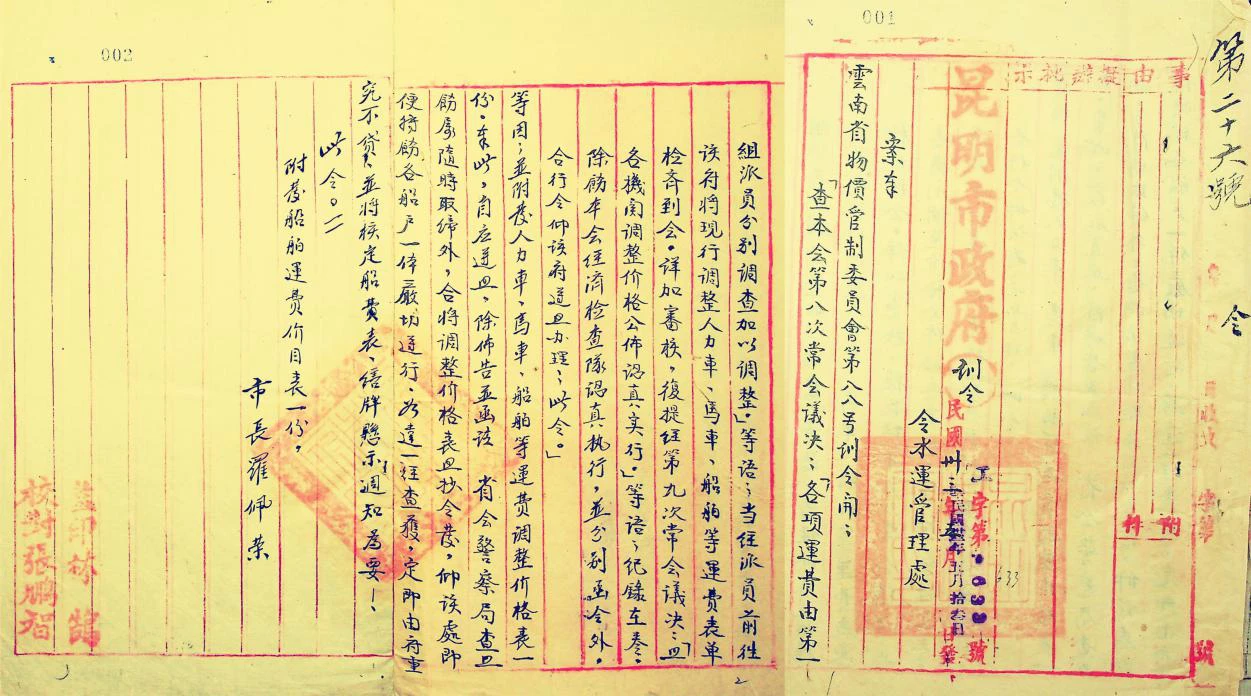 001
第二十六號
令
事由擬辦批示
附件
昆明市政府訓令
工字第0633號
633
令水運管理處
案奉
雲南省物價管制委員會第八八号訓令開；
「查本会第八次常会議决；「各項運費由第一
組派員分別調查加以調整」。等語；当经派員前往
该府将現行調整人力車、馬車、船舶等運費表单
检斉到会。詳加審核，復提经第九次常会議决；「由
各機関調整价格公佈認真实行。」等语；纪錄在卷。
除飭本会经濟检查隊認真执行，並分别函令外，
合行令仰该府遵照办理；此令。」
等因；並附發人力車、馬車、船舶等運費調整价格表一
份。奉此，自应遵照，除佈告並函该 省会警察局查照
飭属随時取締外，合将調整价格表照抄令發，仰该處即
便转飭各船户一体嚴切遵行。如違一经查獲，定即由府重
究不贷，並将核定船費表、缮牌懸示週知為要！
此令。
附發船舶運費价目表一份。
市長羅佩荣
監印林鵠
校對張鵬
002
2